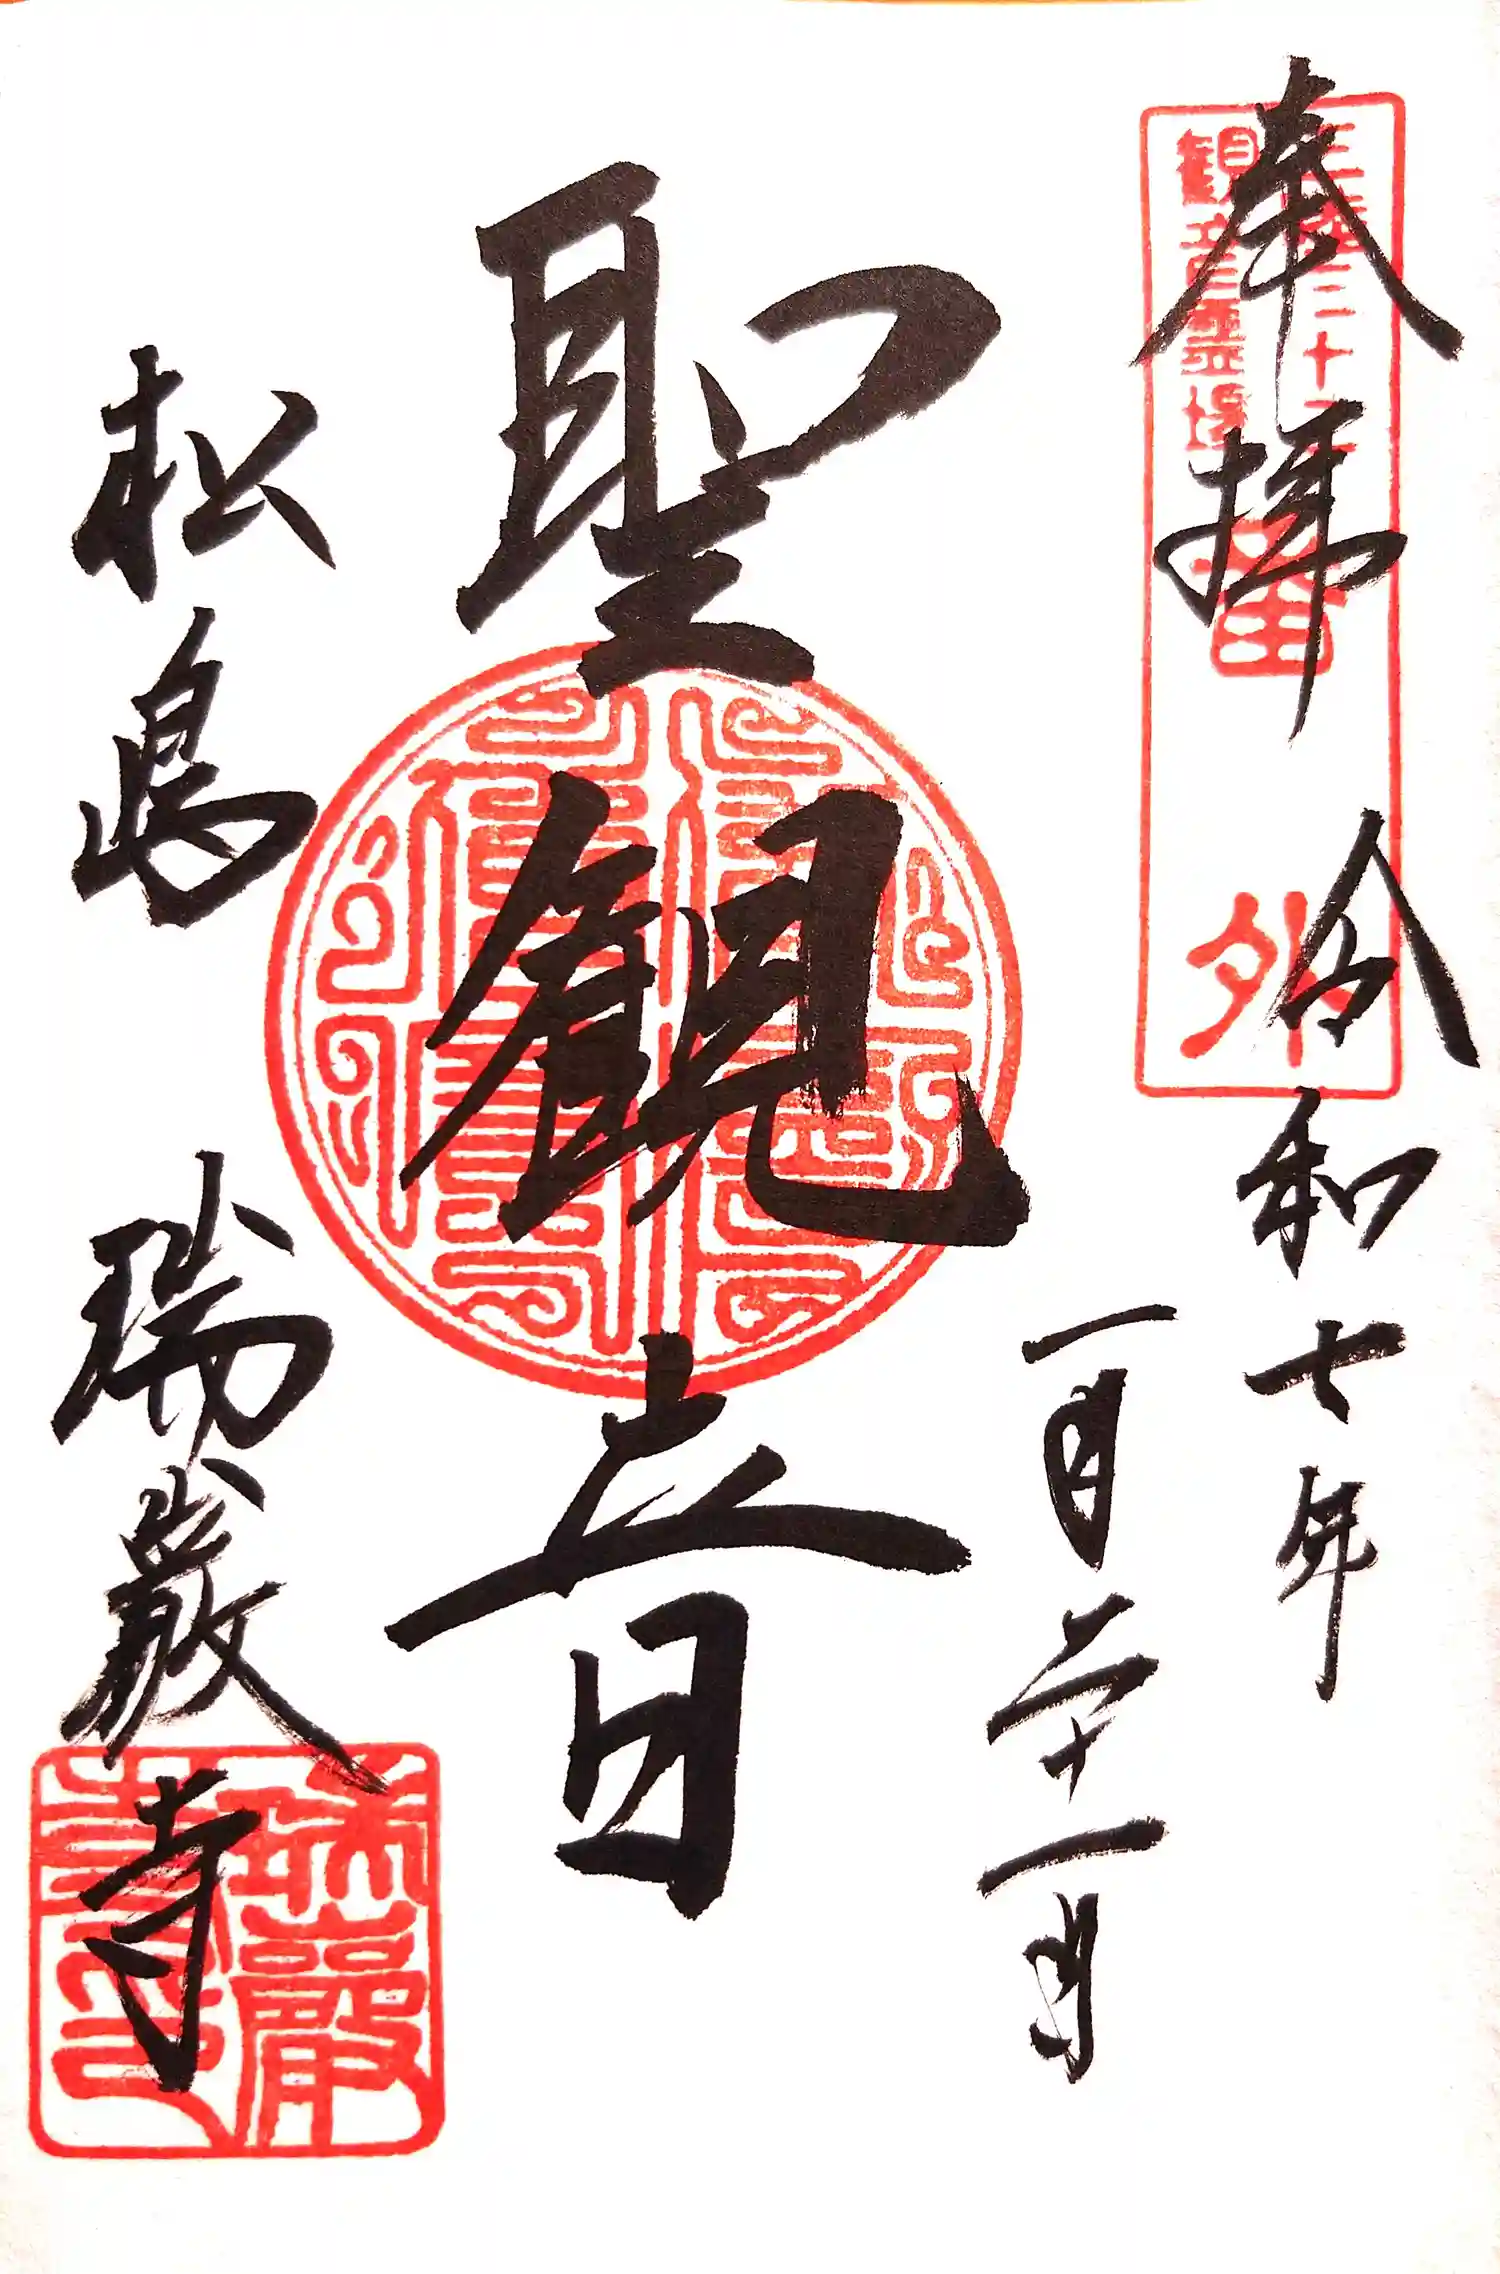 奉拝
三陸三十三
観音霊場
番
外
令和七年
一月二十一日
聖観音
松島 瑞巌寺
瑞巌
寺印